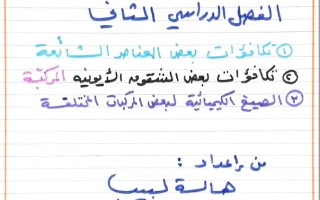 الفصل الدراسي الثاني
① تكافؤات بعض العناصر الشائعة
② تكافؤات بعض الشقوق الأيونيه المركبة
③ الصيغ الكيميائية لبعض المركبات المختلفة
من إعداد :
هالة لبيب